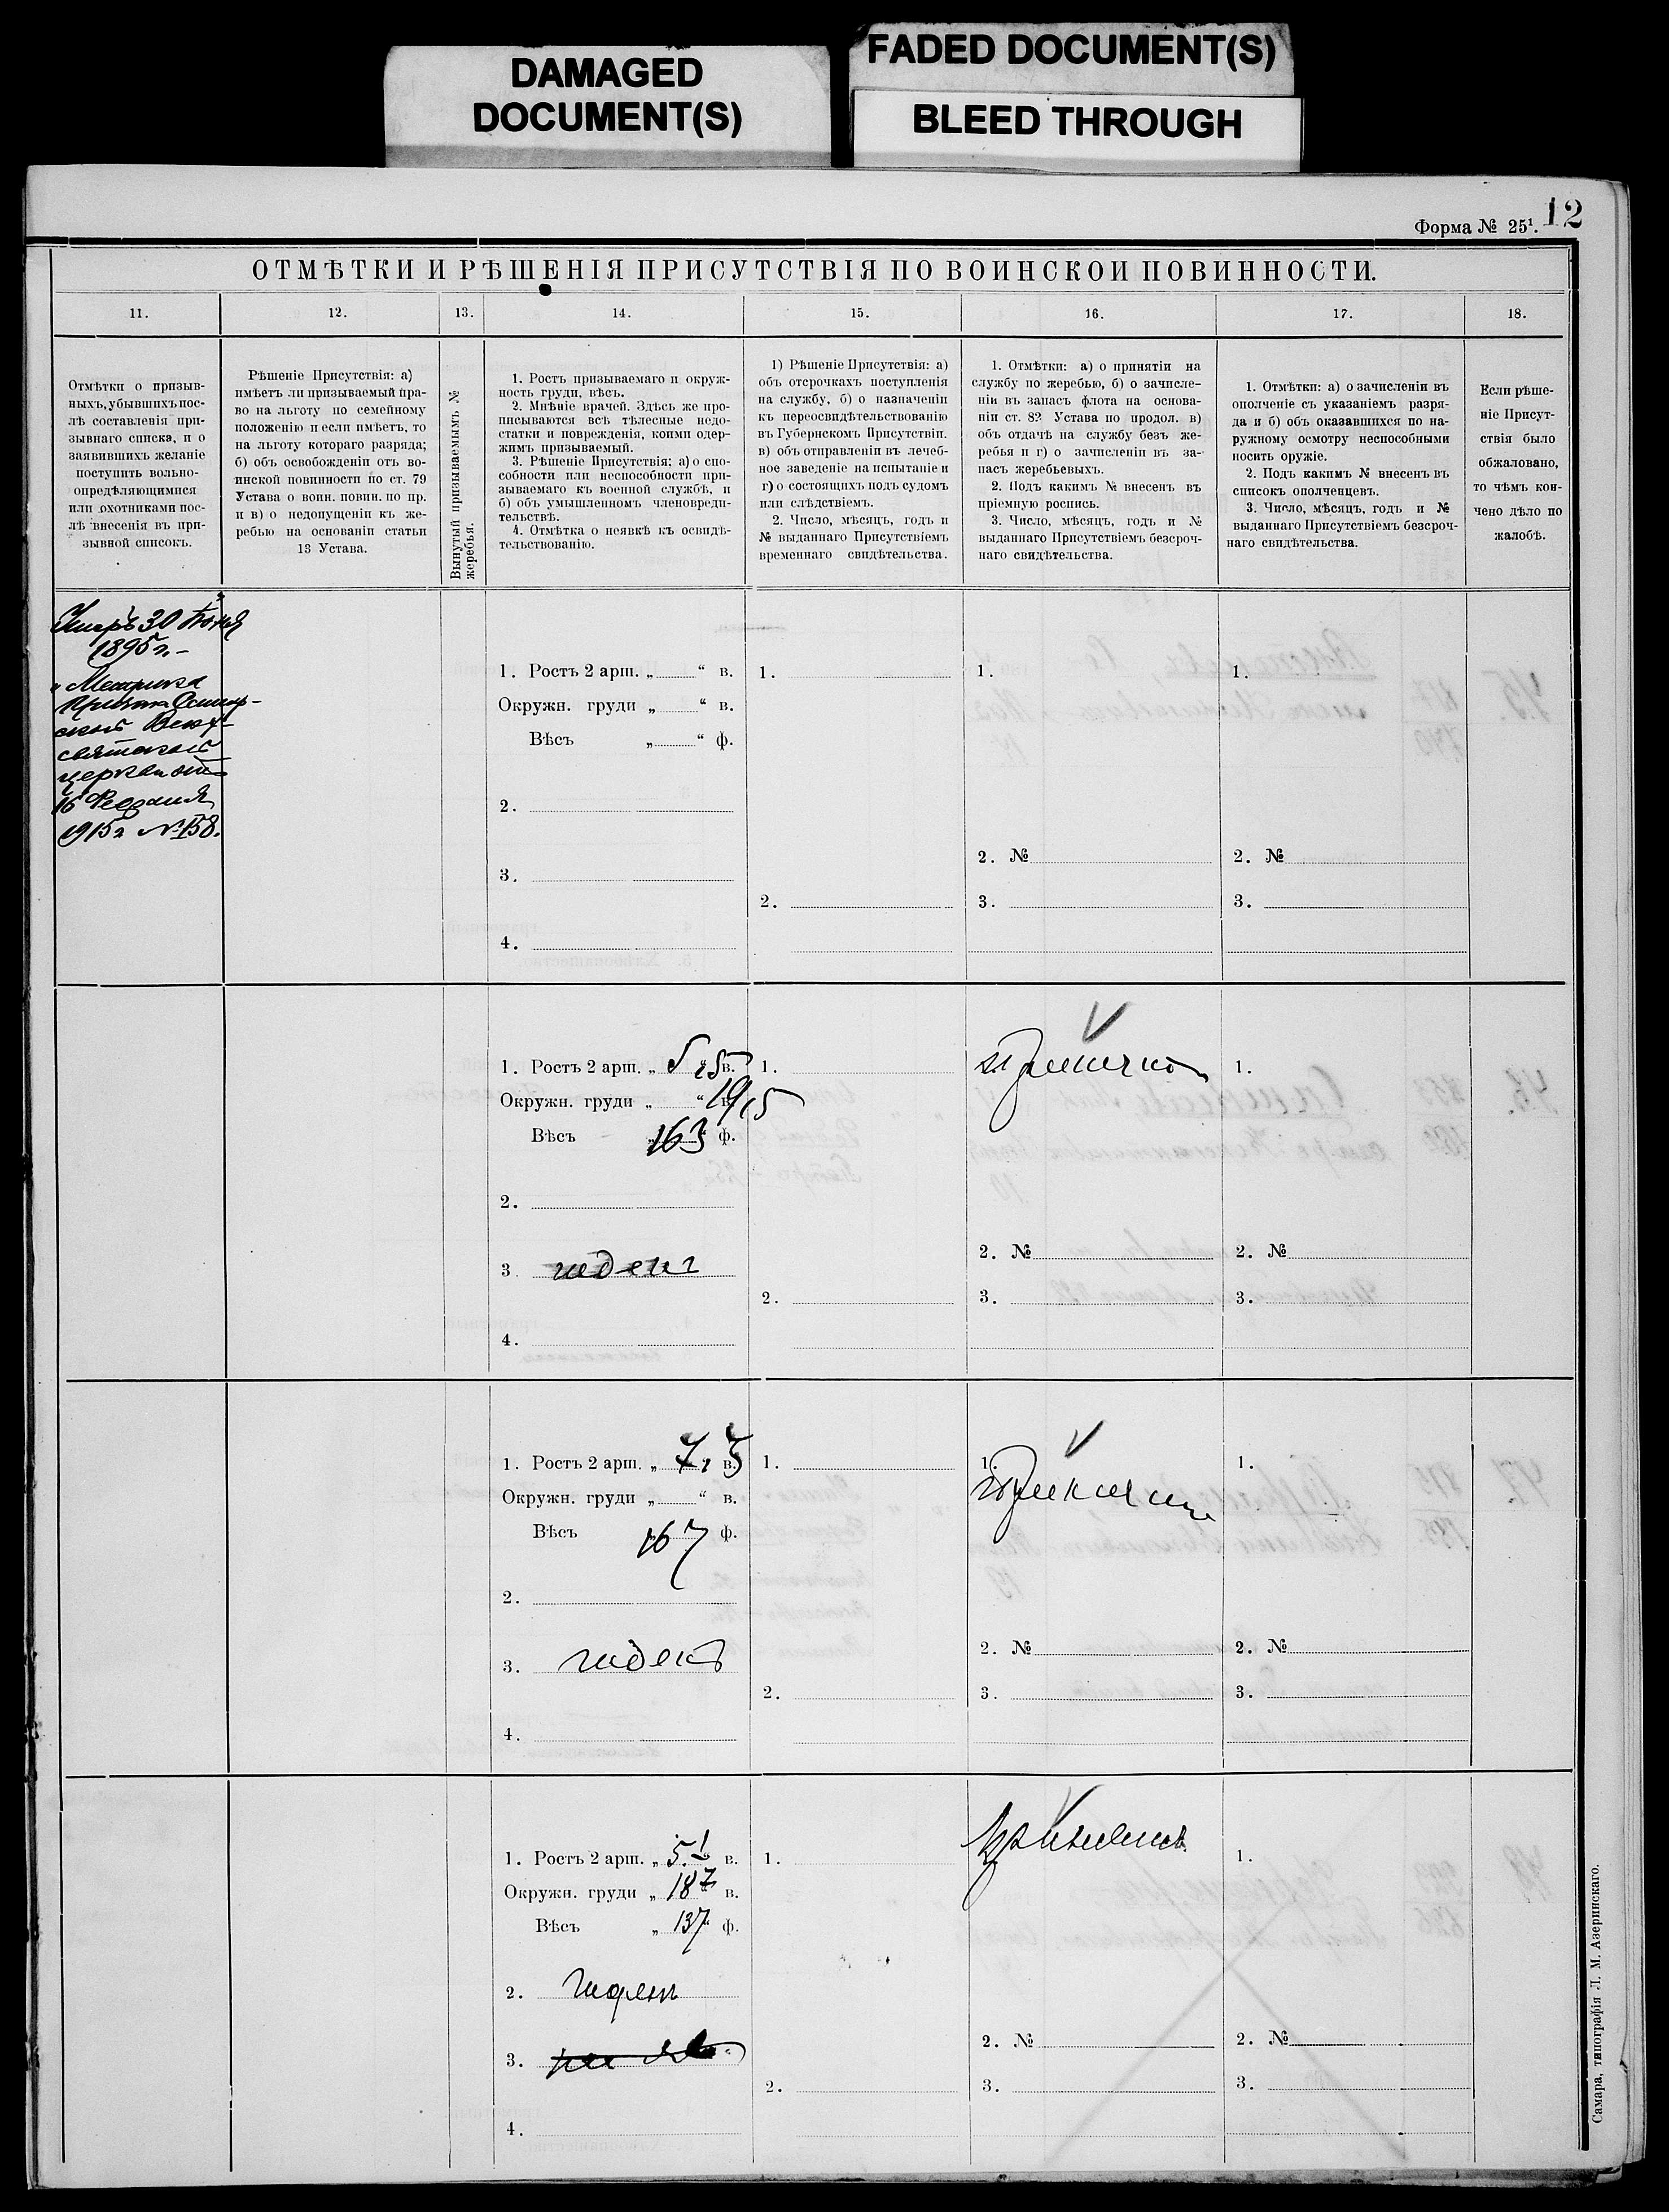 DAMAGED
DOCUMENT(S)
FADED DOCUMENT(S)
BLEED THROUGH
12
Форма № 25¹.
ОТМѢТКИ И РѢШЕНІЯ ПРИСУТСТВІЯ ПО ВОИНСКОИ ПОВИННОСТИ.
11. 12. 13. 14. 15. 16. 17. 18.
Отмѣтки о призыв-
ныхъ, убывшихъ пос-
лѣ составленія при-
зывнаго списка, и о
заявившихъ желаніе
поступить вольно-
опредѣляющимися
или охотниками пос-
лѣ внесенія въ при-
зывной списокъ.
Рѣшеніе Присутствія: а)
имѣетъ ли призываемый пра-
во на льготу по семейному
положенію и если имѣетъ, то
на льготу котораго разряда;
б) объ освобожденіи отъ во-
инской повинности по ст. 79
Устава о воин. повин. по пр.
и в) о недопущеніи къ же-
ребью на основаніи статьи
13 Устава.
Вынутый призываемымъ №
жеребья.
1. Ростъ призываемаго и окруж-
ность груди, вѣсъ.
2. Мнѣніе врачей. Здѣсь же про-
писываются всѣ тѣлесные недо-
статки и поврежденія, коими одер-
жимъ призываемый.
3. Рѣшеніе Присутствія: а) о спо-
собности или неспособности при-
зываемаго къ военной службѣ, и
б) объ умышленномъ членовреди-
тельствѣ.
4. Отмѣтка о неявкѣ къ освидѣ-
тельствованію.
1) Рѣшеніе Присутствія: а)
объ отсрочкахъ поступленія
на службу, б) о назначеніи
къ переосвидѣтельствованію
въ Губернскомъ Присутствіи.
в) объ отправленіи въ лечеб-
ное заведеніе на испытаніе и
г) о состоящихъ подъ судомъ
или слѣдствіемъ.
2. Число, мѣсяцъ, годъ и
№ выданнаго Присутствіемъ
временнаго свидѣтельства.
1. Отмѣтки: а) о принятіи на
службу по жеребью, б) о зачисле-
ніи въ запасъ флота на основа-
ніи ст. 82 Устава по продол. в)
объ отдачѣ на службу безъ же-
ребья и г) о зачисленіи въ за-
пасъ жеребьевыхъ.
2. Подъ какимъ № внесенъ въ
пріемную роспись.
3. Число, мѣсяцъ, годъ и №
выданнаго Присутствіемъ безсроч-
наго свидѣтельства.
1. Отмѣтки: а) о зачисленіи въ
ополченіе съ указаніемъ разря-
да и б) объ оказавшихся по на-
ружному осмотру неспособными
носить оружіе.
2. Подъ какимъ № внесенъ въ
списокъ ополченцевъ.
3. Число, мѣсяцъ, годъ и №
выданнаго Присутствіемъ безсроч-
наго свидѣтельства.
Если рѣше-
ніе Присут-
ствія было
обжаловано,
то чѣмъ кон-
чено дѣло по
жалобѣ.
Умеръ 30 Іюня
1895 г. –
Метрика
Причта
скої Всех-
святской
церкви отъ
16 Февраля
1915 г № 158.
1. Ростъ 2 арш. „ “ в.
Окружн. груди „ “ в.
Вѣсъ „ “ ф.
2.
3.
4.
1.
2.
1.
2. №
3.
1.
2. №
3.
1. Ростъ 2 арш. „ 5 “ в.
Окружн. груди „ “ в.
Вѣсъ 163 ф.
2.
3 годенъ
4.
1.
2.
Принятъ
2. №
3.
1.
2. №
3.
1. Ростъ 2 арш. „ 7 в.
Окружн. груди „ “ в.
Вѣсъ 167 ф.
2.
3. годенъ
4.
1.
2.
1.
Принятъ
2. №
3.
1.
2. №
3.
1. Ростъ 2 арш. „ 5. в.
Окружн. груди „ 18 “ в.
Вѣсъ „ 137 ф.
2. годенъ
3.
4.
1.
2.
Принятъ
2. №
3.
1.
2. №
3.
Самара, типографія Л. М. Азеринскаго.